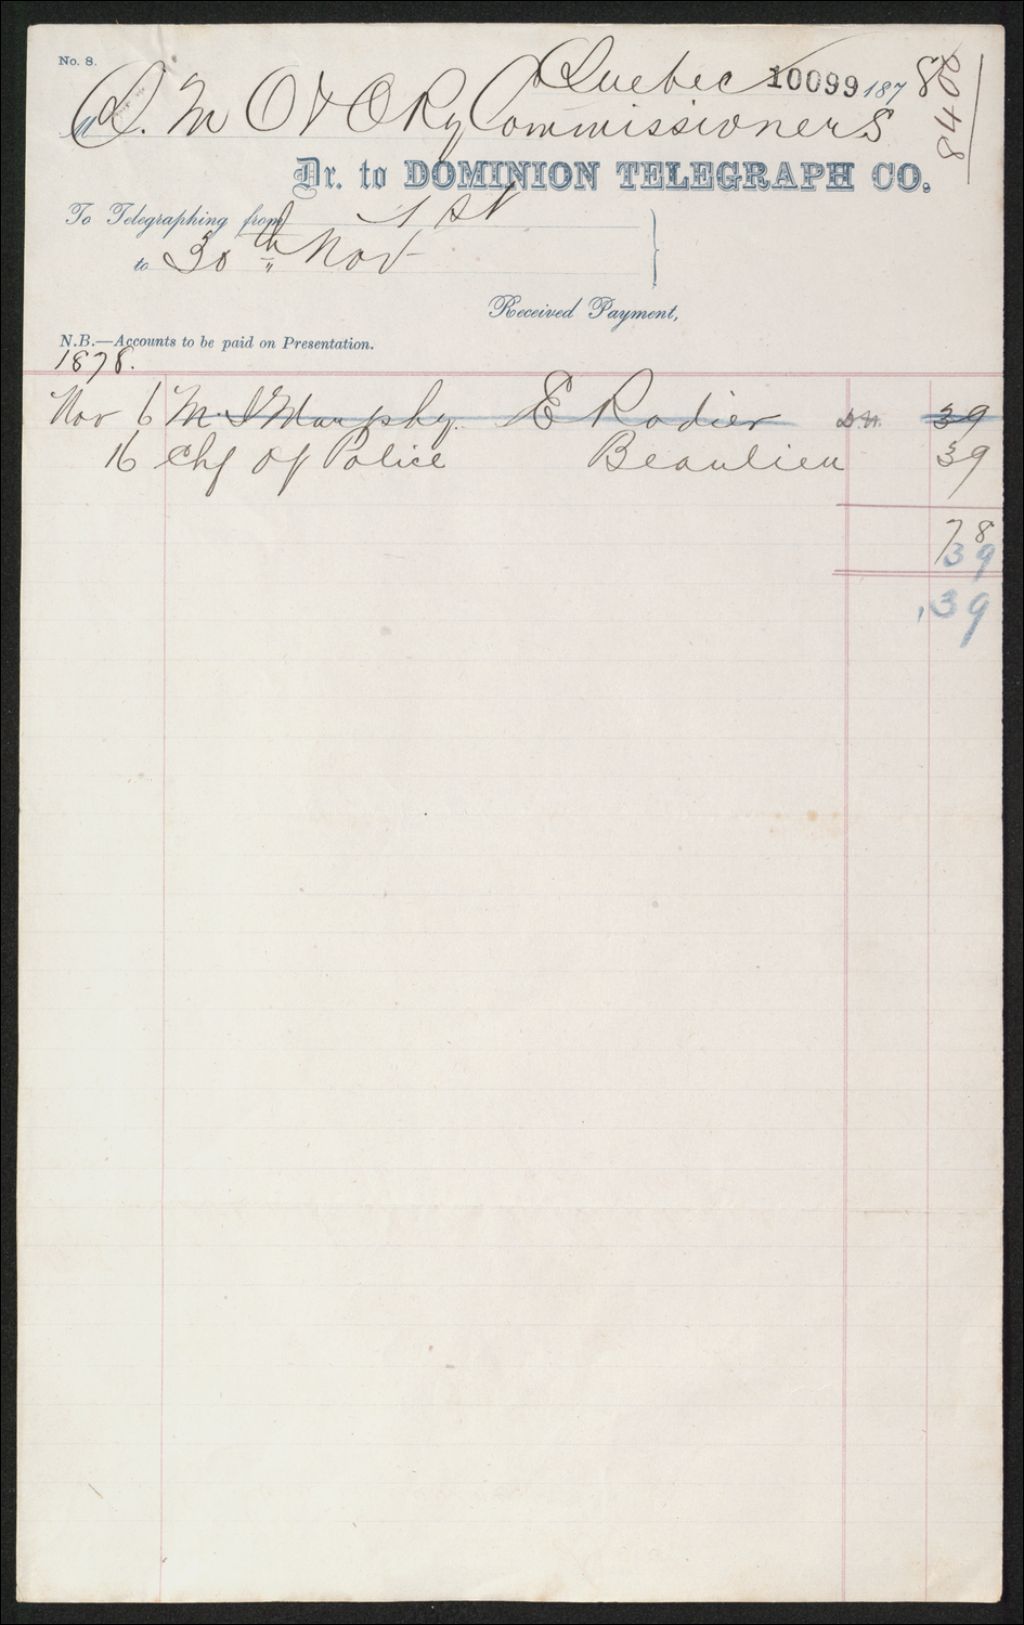 No. 8.
Quebec 10099 1878
8402
M Q. M O & O Ry Commissioners
Dr. to DOMINION TELEGRAPH CO.
To Telegraphing from 1st
to 30th Nov
Received Payment,
N.B.—Accounts to be paid on Presentation.
1878.
Nov 6 M. J Murphy. E Rodier 39
16 Chf of Police Beaulieu 39
78
39
,39